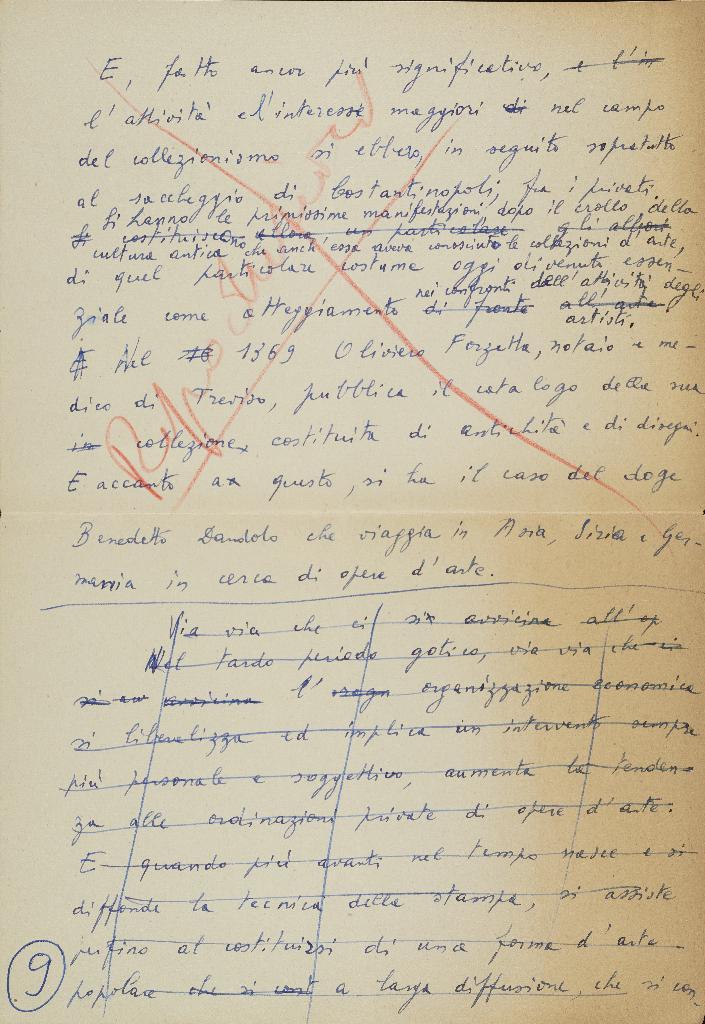 E, fatto ancor più significativo, e l'in
l'attività e l'interesse maggiori di nel campo
del collezionismo si ebbero, in seguito sopratutto
al saccheggio di Costantinopoli, fra i privati.
Si hanno le primissime manifestazioni, dopo il crollo della
costituiscono allora un particolare gli albori
cultura antica che anch'essa aveva conosciuto le collezioni d'arte,
di quel particolare costume oggi divenuto essen-
nei confronti dell'attività degli
ziale come atteggiamento di fronte all'arte
artisti.
Nel 1369 Oliviero Forzetta, notaio e me-
dico di Treviso, pubblica il catalogo della sua
in collezione, costituita di antichità e di disegni.
E accanto a questo, si ha il caso del doge
Benedetto Dandolo che viaggia in Asia, Siria e Ger-
mania in cerca di opere d'arte.
Via via che ci si avvicina all'op
Nel tardo periodo gotico, via via che ci
si avvicina l' organizzazione economica
si liberalizza ed implica un intervento sempre
più personale e soggettivo, aumenta la tenden-
za alle ordinazioni private di opere d'arte.
E quando più avanti nel tempo nasce e si
diffonde la tecnica della stampa, si assiste
perfino al costituirsi di una forma d'arte
popolare che si così a larga diffusione, che si con-
9